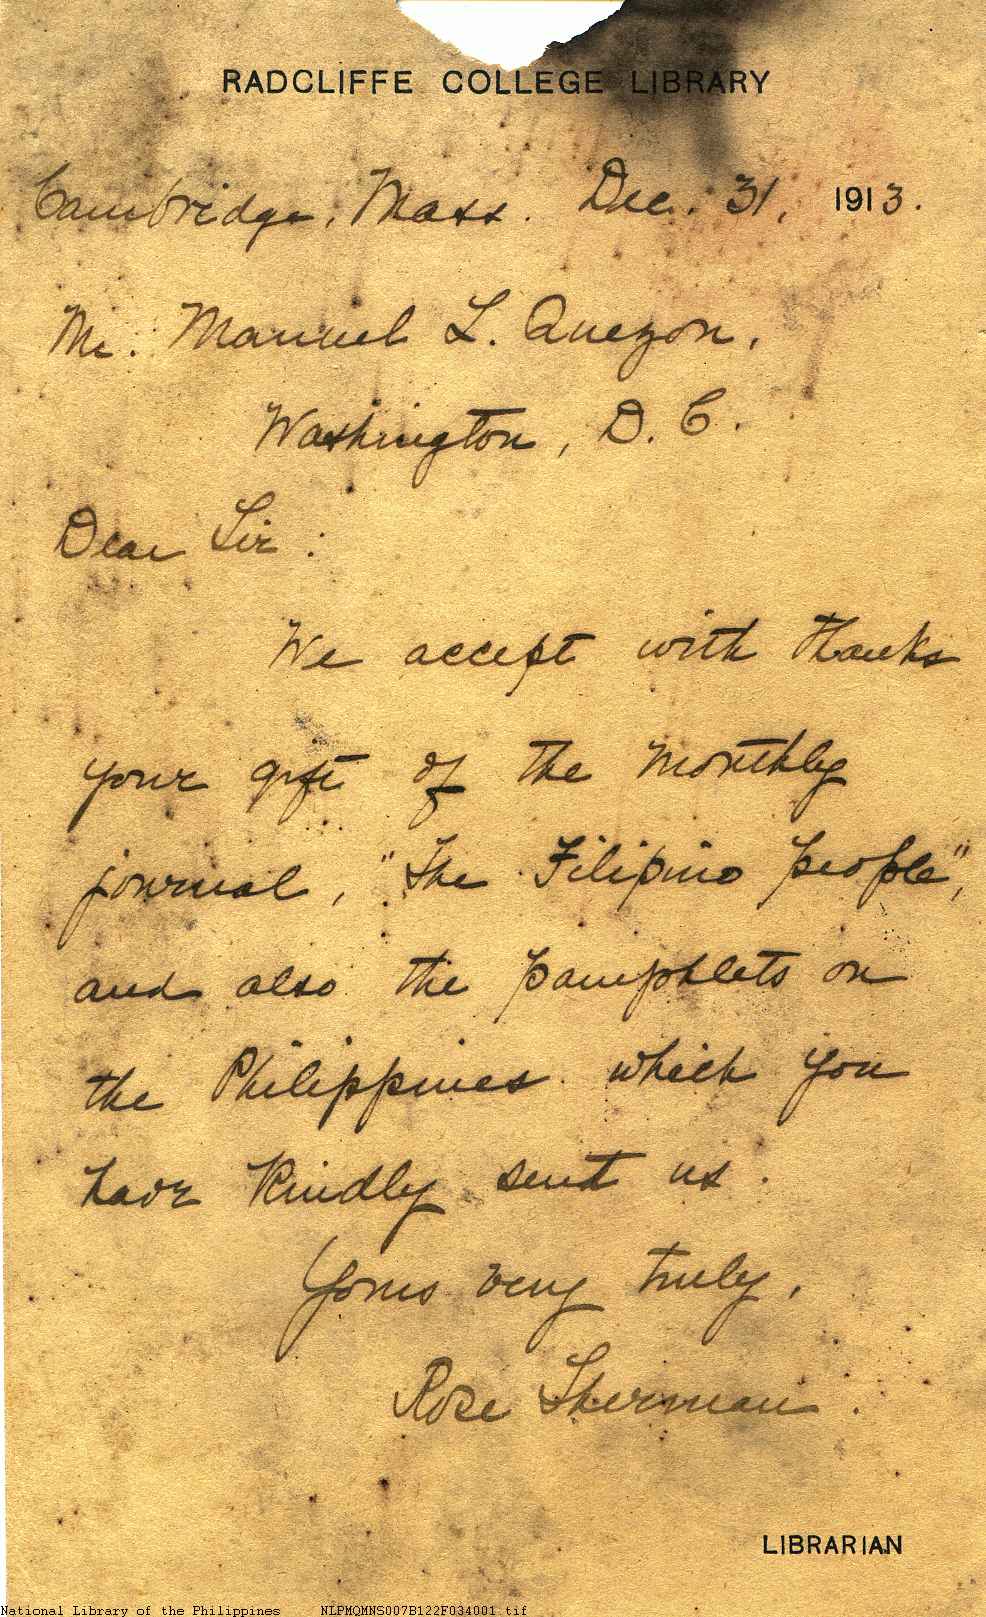 RADCLIFFE COLLEGE LIBRARY
Cambridge, Mass. Dec. 31, 1913.
Mr. Manuel L. Quezon,
Washington, D. C.
Dear Sir:
We accept with thanks
your gift of the monthly
journal, "The Filipino people",
and also the pamphlets on
the Philippines which you
have kindly sent us.
Yours very truly,
Rose Sherman.
LIBRARIAN
National Library of the Philippines NLPMQMNS007B122F034001.tif